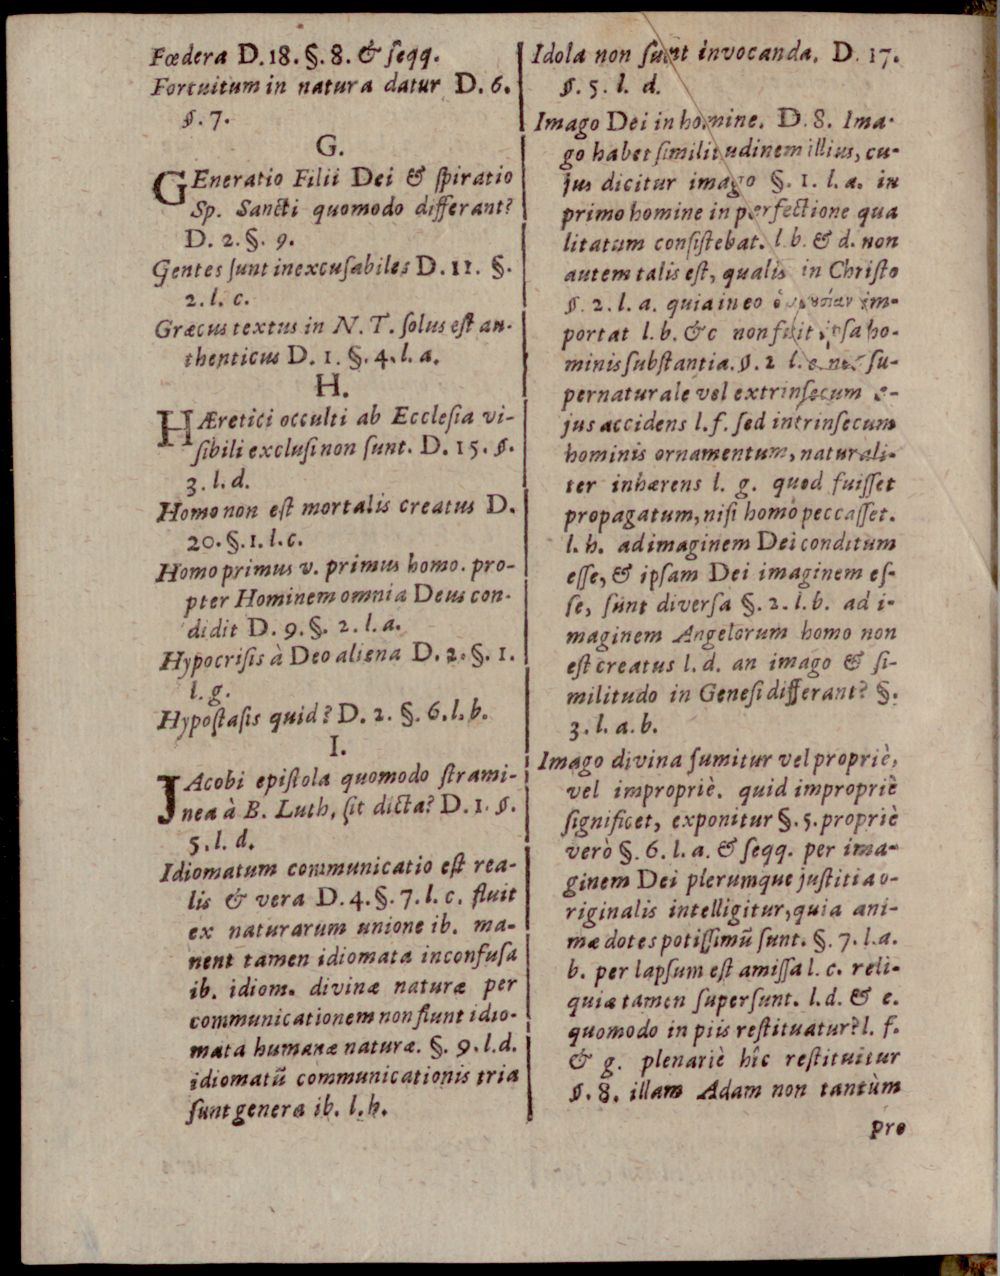 Fœdera D. 18. §. 8. & ſeqq.
Fortuitum in natura datur D. 6.
§. 7.
G.
GEneratio Filii Dei & ſpiratio
Sp. Sancti quomodo differant?
D. 2. §. 9.
Gentes ſunt inexcuſabiles D. 11. §.
2. l. c.
Græcus textus in N. T. ſolus eſt an-
thenticus D. 1. §. 4. l. a.
H.
HÆretici occulti ab Eccleſia vi-
ſibili excluſi non ſunt. D. 15. §.
3. l. d.
Homo non eſt mortalis creatus D.
20. §. 1. l. c.
Homo primus v. primus homo. pro-
pter Hominem omnia Deus con-
didit D. 9. §. 2. l. a.
Hypocriſis à Deo aliena D. 2. §. 1.
l. g.
Hypoſtaſis quid? D. 2. §. 6. l. b.
I.
JAcobi epiſtola quomodo ſtrami-
nea à B. Luth, ſit dicta? D. 1. §.
5. l. d.
Idiomatum communicatio eſt rea-
lis & vera D. 4. §. 7. l. c. fluit
ex naturarum unione ib. ma-
nent tamen idiomata inconfuſa
ib. idiom. divinæ naturæ per
communicationem non fiunt idio-
mata humanæ naturæ. §. 9. l. d.
idiomatū communicationis tria
ſunt genera ib. l. h.
Idola non ſunt invocanda. D. 17.
§. 5. l. d.
Imago Dei in homine. D. 8. Ima-
go habet ſimilitudinem illius, cu-
jus dicitur imago §. 1. l. a. in
primo homine in perfectione qua
litatum conſiſtebat. l. b. & d. non
autem talis eſt, qualis in Chriſto
§. 2. l. a. quia in eo im-
portat l. b. & c non fuit ipſa ho-
minis ſubſtantia. §. 2 l. e nec ſu-
pernaturale vel extrinſecum e-
jus accidens l. f. ſed intrinſecum
hominis ornamentum, naturali-
ter inhærens l. g. quod fuiſſet
propagatum, niſi homo peccaſſet.
l. h. ad imaginem Dei conditum
eſſe, & ipſam Dei imaginem eſ-
ſe, ſunt diverſa §. 2. l. b. ad i-
maginem Angelorum homo non
eſt creatus l. d. an imago & ſi-
militudo in Geneſi differant? §.
3. l. a. b.
Imago divina ſumitur vel propriè,
vel impropriè. quid impropriè
ſignificet, exponitur §. 5. propriè
verò §. 6. l. a. & ſeqq. per ima-
ginem Dei plerumque juſtitia o-
riginalis intelligitur, quia ani-
mæ dotes potiſſimū ſunt. §. 7. l. a.
b. per lapſum eſt amiſſa l. c. reli-
quiæ tamen ſuperſunt. l. d. & e.
quomodo in piis reſtituatur? l. f.
& g. plenariè hîc reſtituitur
§. 8. illam Adam non tantùm
pro